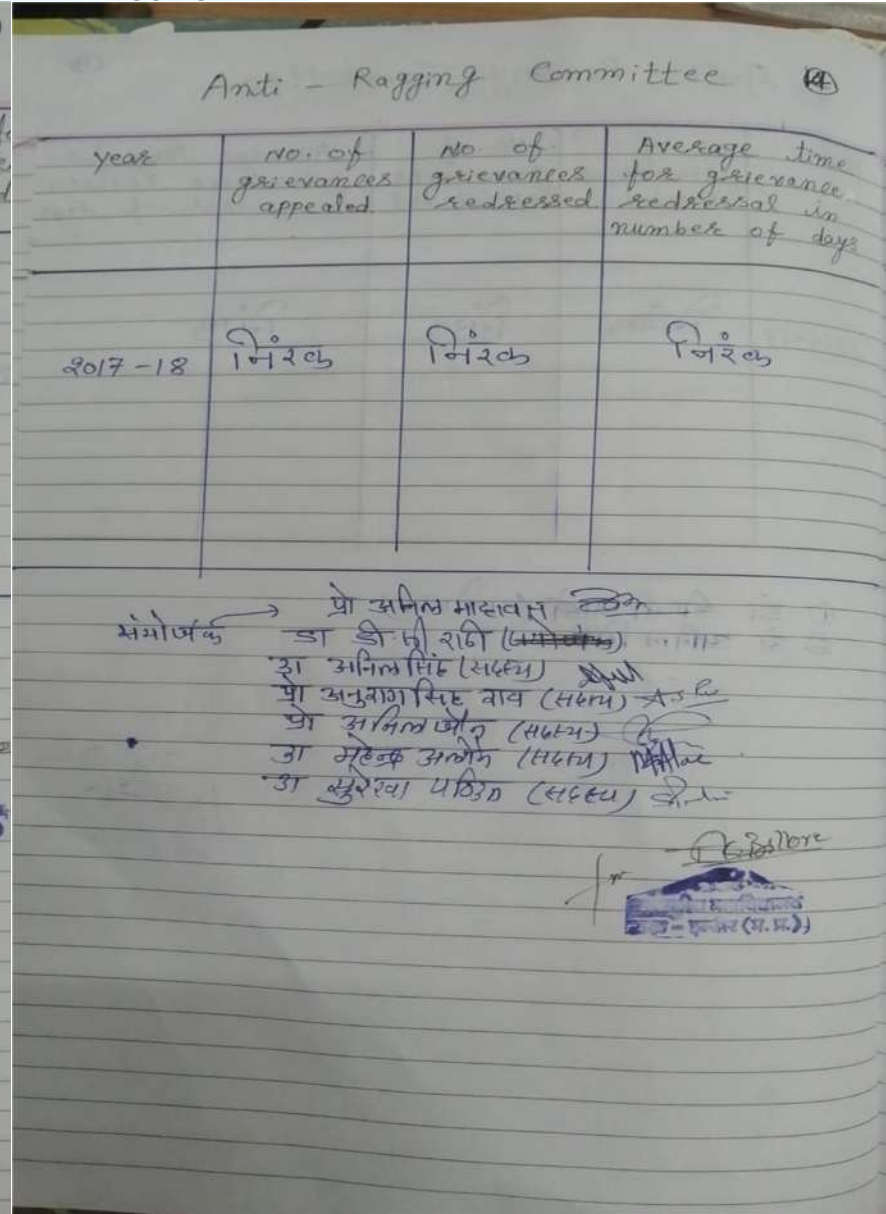 Anti - Ragging Committee 14
Year
No. of grievances appealed
No. of grievances redressed
Average time for grievance redressal in number of days
2017-18 निंरक निंरक निंरक
प्रो अनिल
संयोजक → डा डी सी राठी
डा अनिल सिंह (सदस्य)
प्रो अनुराग सिंह राव (सदस्य)
प्रो अनिल जैन (सदस्य)
डा महेन्द्र (सदस्य)
डा सुरेखा (सदस्य)
for
(म.प्र.)